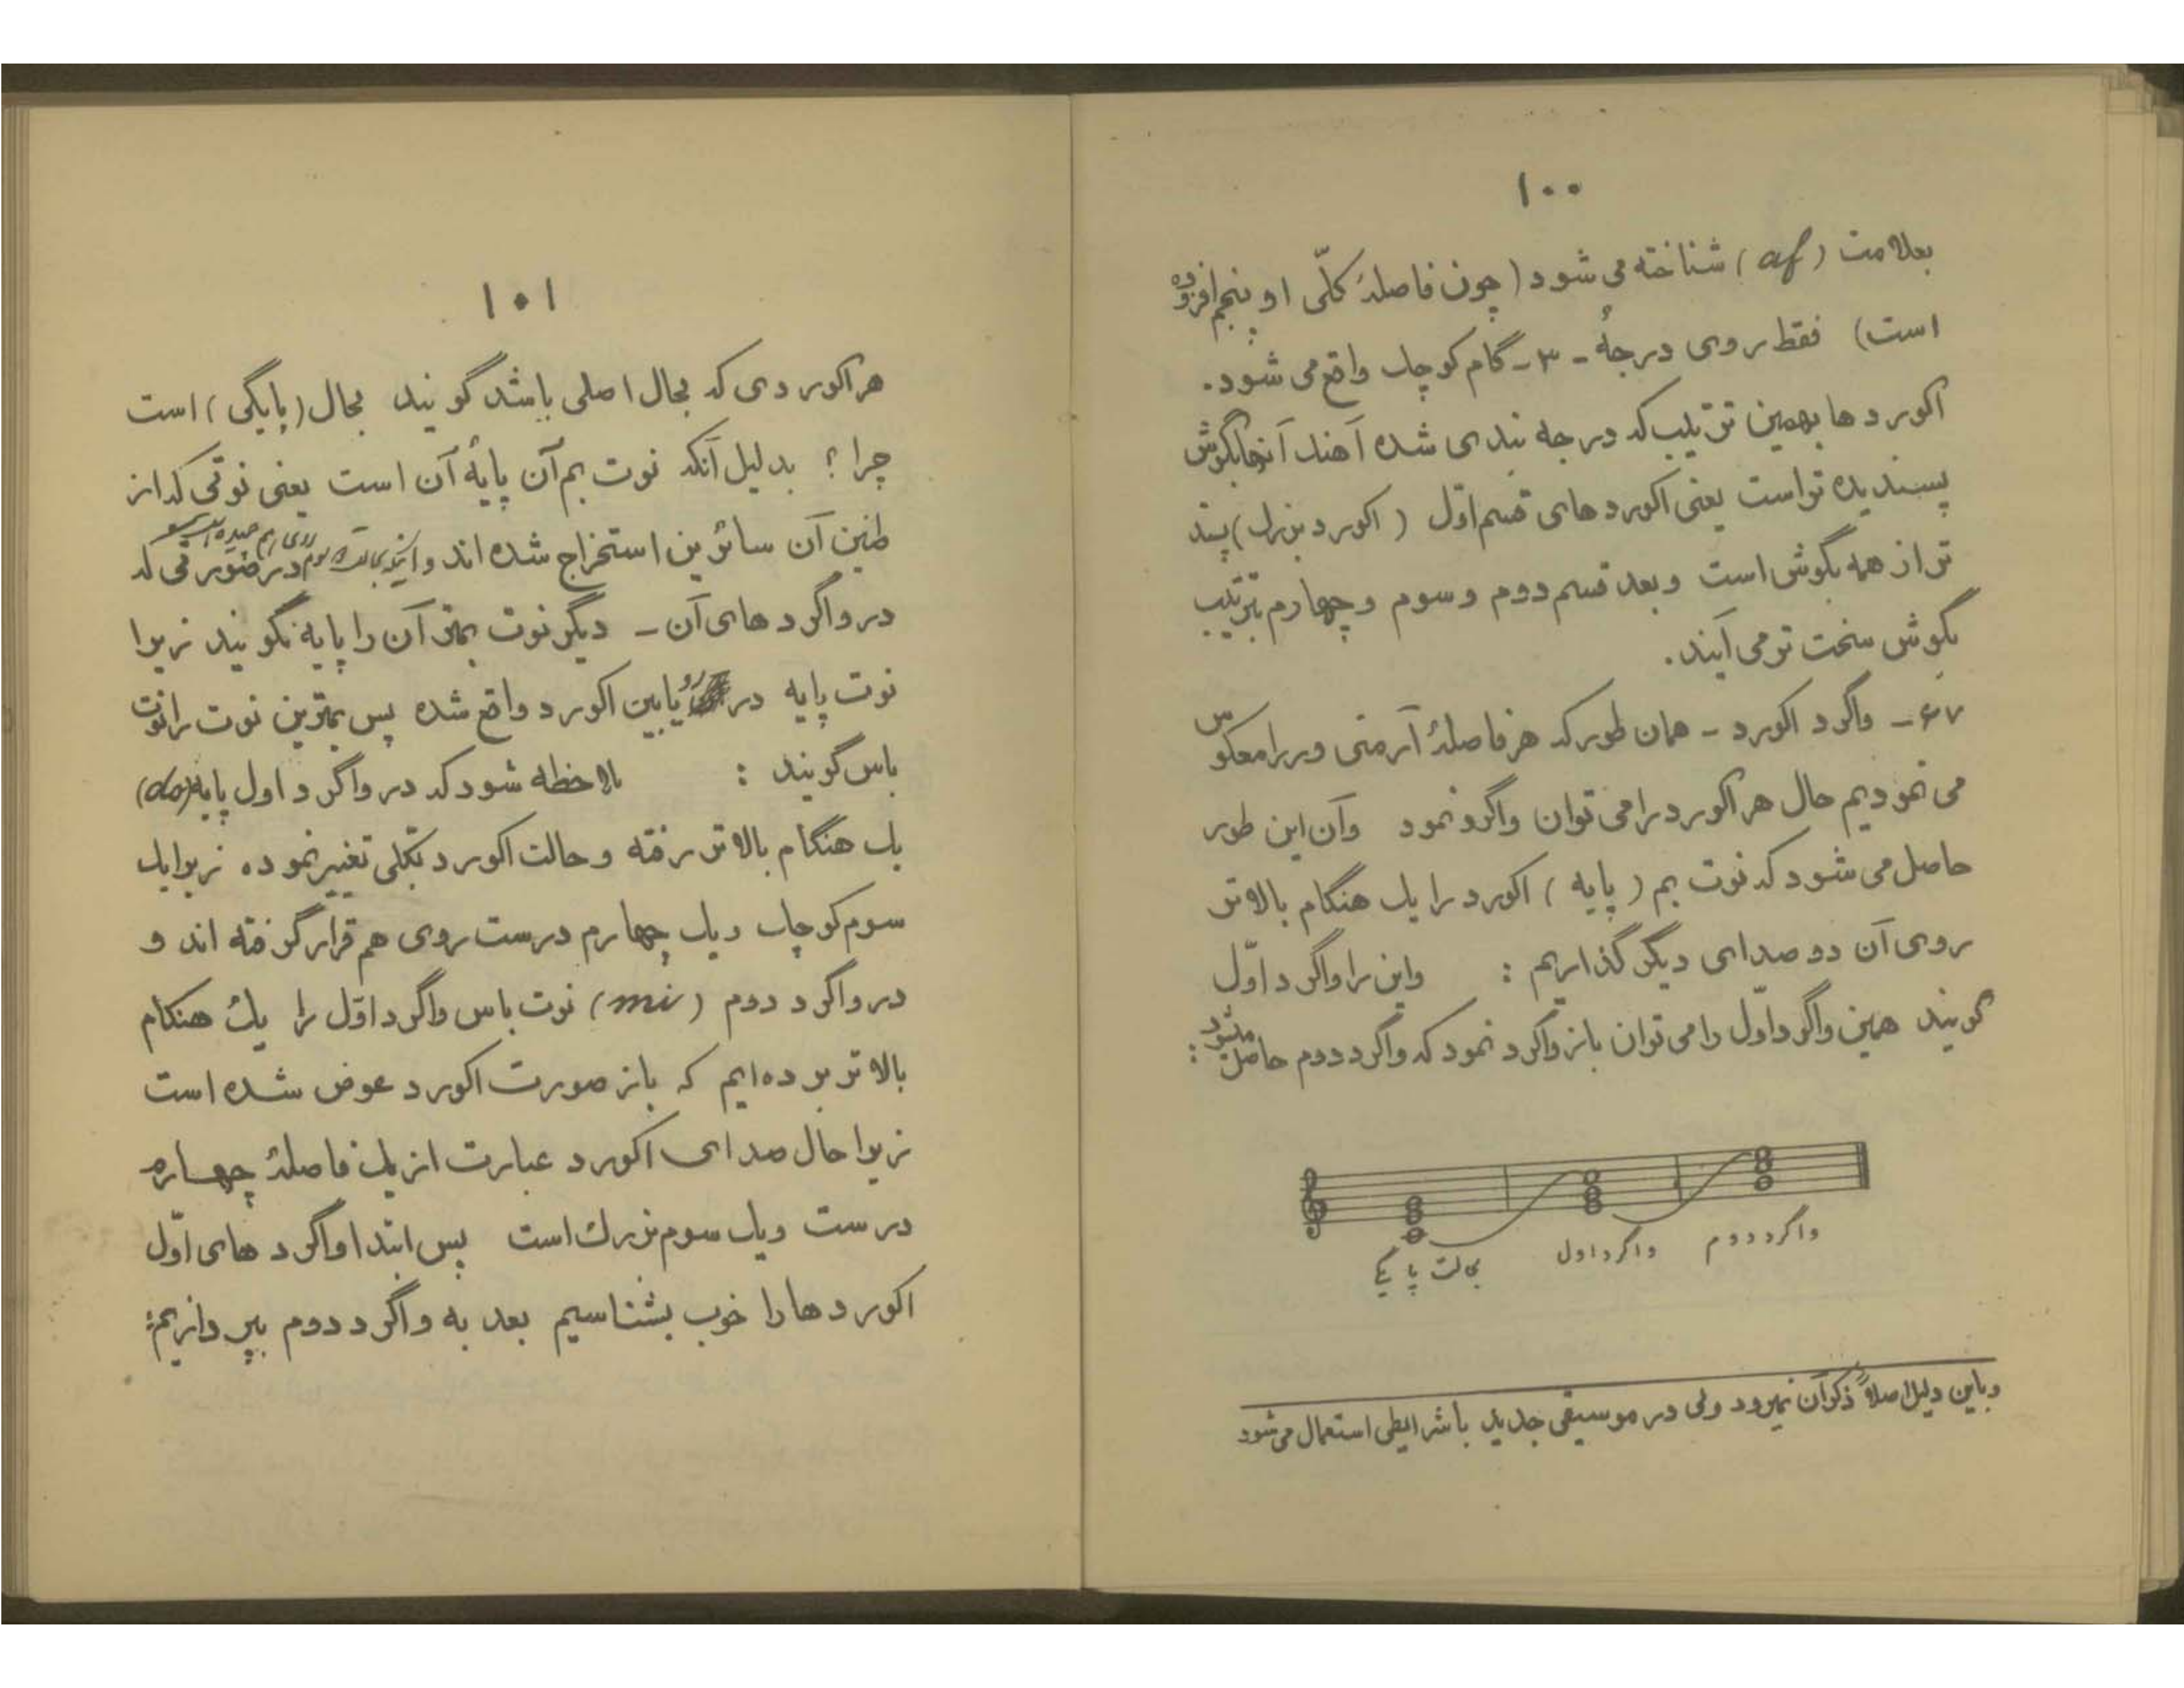 ۱۰۰
بعلامت (af) شناخته می شود (چون فاصلهٔ کلّی او پنجم افزوده
است) فقط روی درجهٔ - ۳ - گام کوچک واقع می شود.
اکوردها بهمین ترتیب که درجه بندی شده آهنگ آنها بگوش
پسندیده تر است یعنی اکوردهای قسم اوّل (اکورد بزرگ) پسند
تر از همه بگوش است و بعد قسم دوم و سوم و چهارم بترتیب
بگوش سخت تر می آیند.
۴۷ - واگرد اکورد - همان طور که هر فاصلهٔ آرمنی ور را معکوس
می نمودیم حال هر اکورد را می توان واگرد نمود وآن این طور
حاصل می شود که نوت بم (پایه) اکورد را یک هنگام بالاتر
روی آن دو صدای دیگر گذاریم : واین را واگرد اوّل
گویند همین واگرد اوّل را می توان باز واگرد نمود که واگرد دوم حاصل میشود :
بحالت پایگی واگرد اول واگرد دوم
وباین دلیل اصلاً ذکر آن نمیرود ولی در موسیقی جدید با شرایطی استعمال می شود
۱۰۱
هر اکوردی که بحال اصلی باشد گویند بحال (پایگی) است
چرا؟ بدلیل آنکه نوت بم آن پایهٔ آن است یعنی نوتی که از
طنین آن سائرین استخراج شده اند و در صورتی که
در واگردهای آن - دیگر نوت بمتر آن را پایه نگویند زیرا
نوت پایه در رو یا بین اکورد واقع شده پس بمترین نوت را نوت
باس گویند : ملاحظه شود که در واگرد اول پایه (do)
یک هنگام بالاتر رفته و حالت اکورد بکلی تغییر نموده زیرا یک
سوم کوچک و یک چهارم درست روی هم قرار گرفته اند و
در واگرد دوم (mi) نوت باس واگرد اوّل را یک هنگام
بالاتر برده ایم که باز صورت اکورد عوض شده است
زیرا حال صدای اکورد عبارت از یک فاصلهٔ چهارم
درست ویک سوم بزرگ است پس ابتدا واگردهای اوّل
اکوردها را خوب بشناسیم بعد به واگرد دوم بپردازیم: